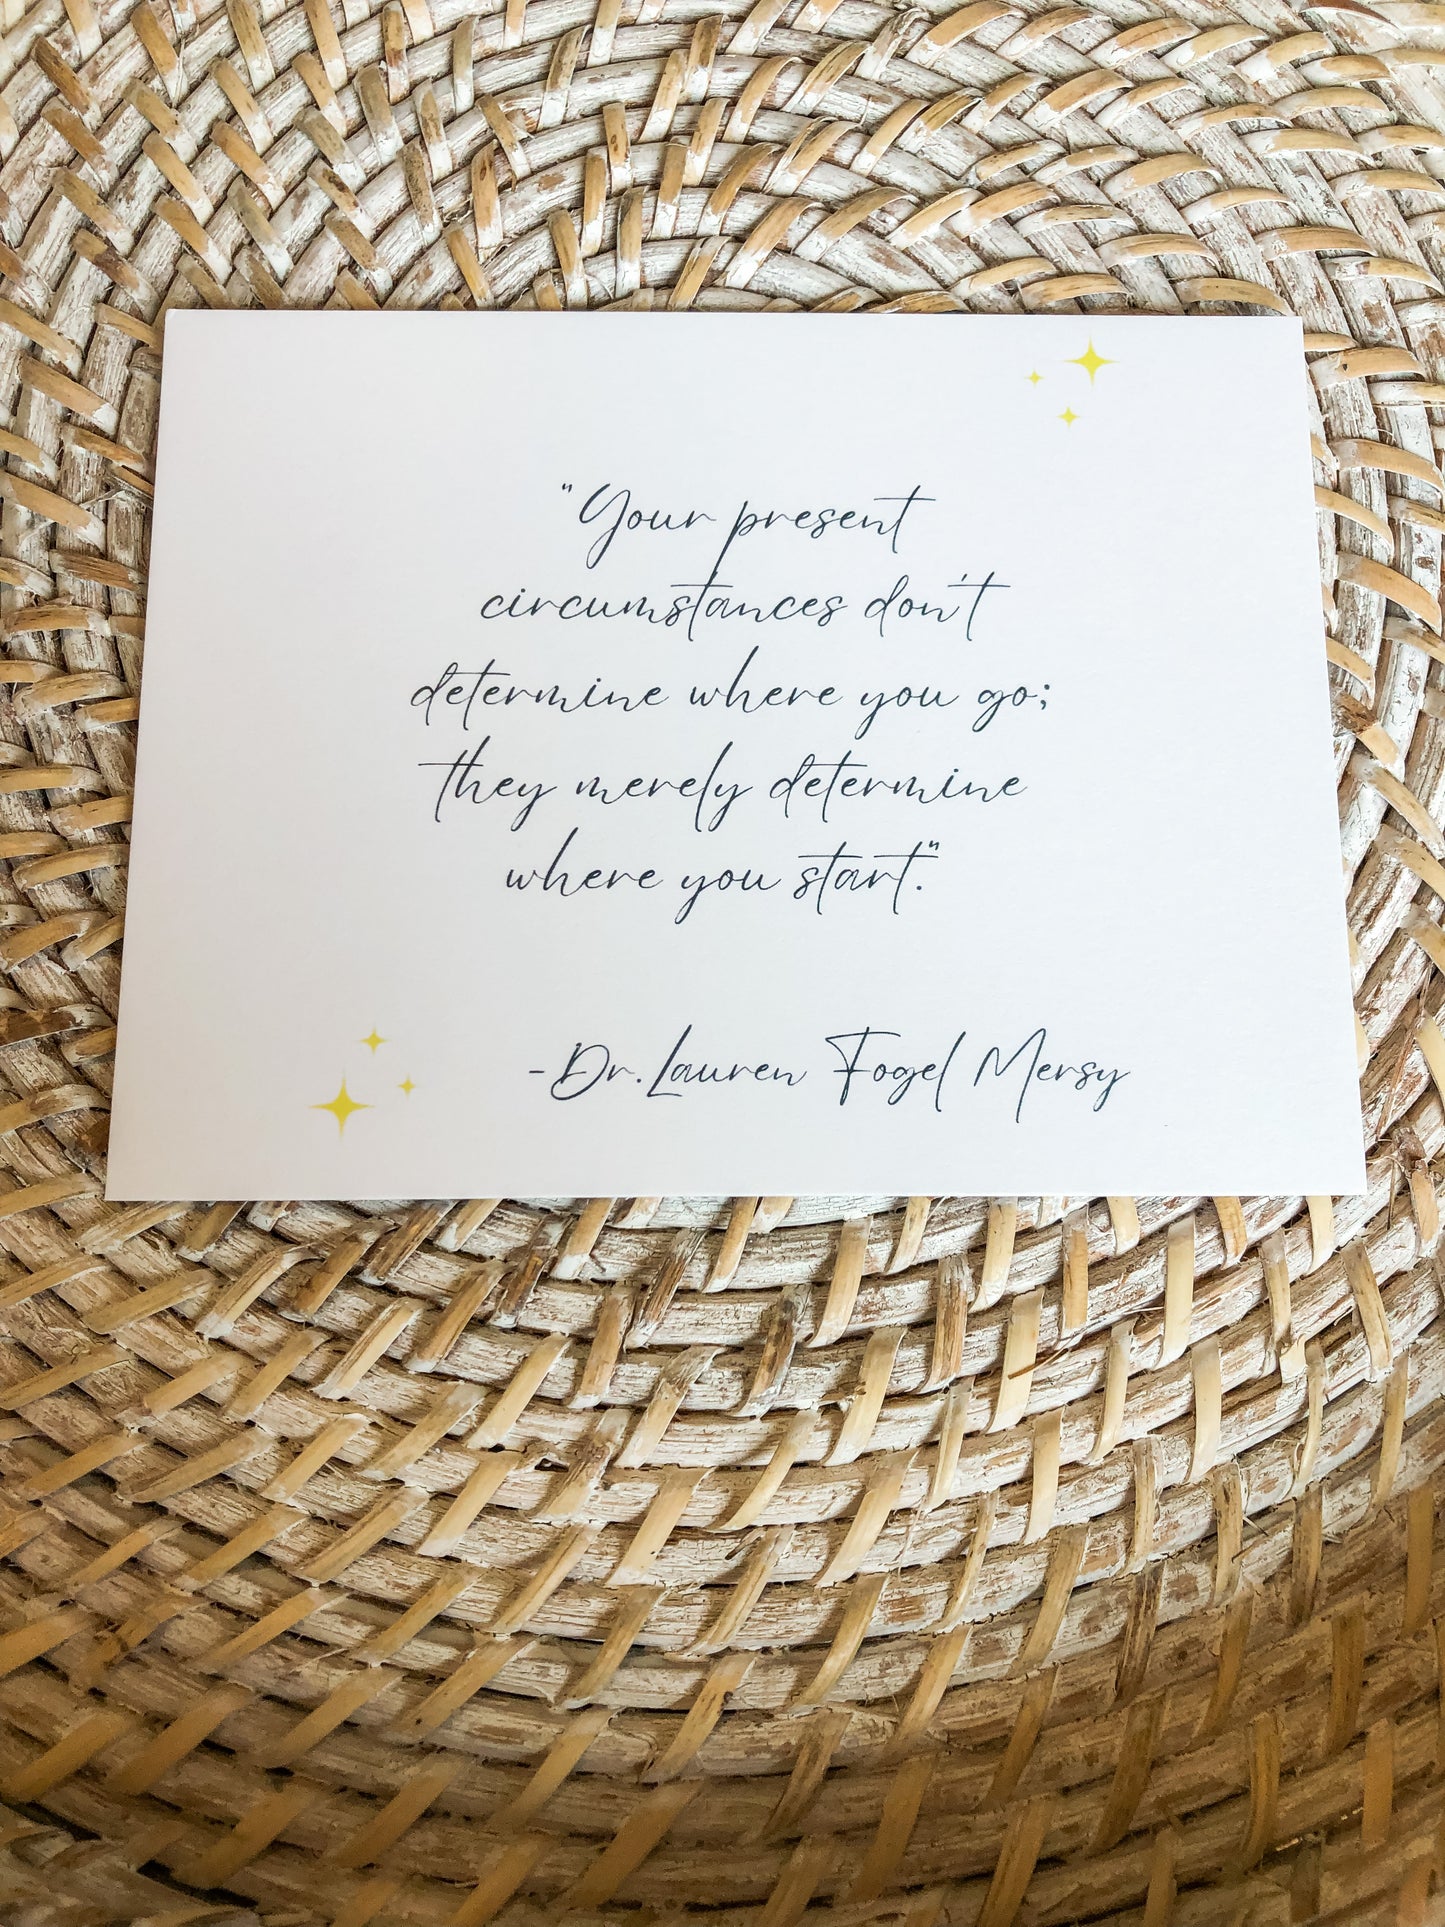 "Your present
circumstances don't
determine where you go;
they merely determine
where you start."
-Dr. Lauren Fogel Mersy